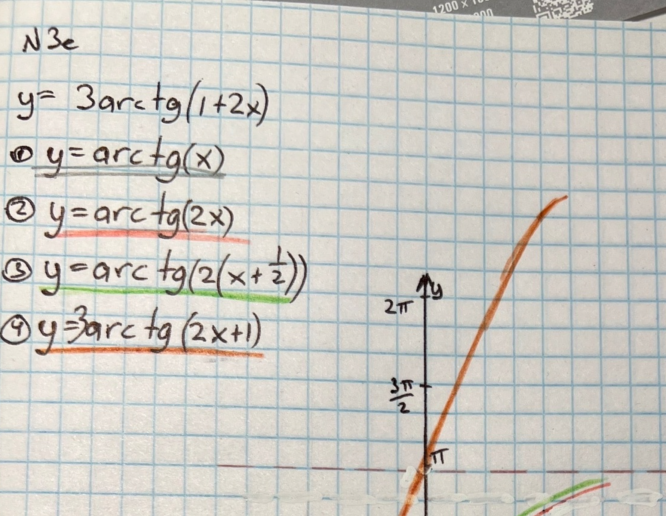 N3e
y= 3arctg(1+2x)
① y=arctg(x)
② y=arctg(2x)
③ y=arctg(2(x+1/2))
④ y=3arctg(2x+1)
y
2π
3π/2
π